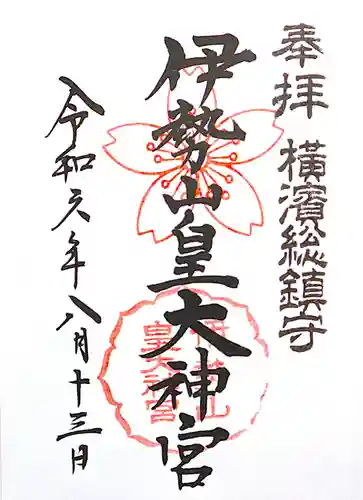 奉拝 橫濱総鎮守
伊勢山皇大神宮
伊勢山
皇大神宮
令和六年八月十三日